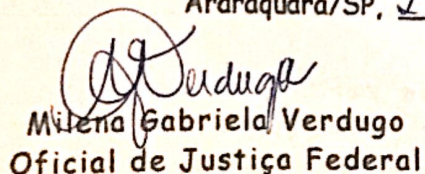 Araraquara/SP,
Verdugo
Milena Gabriela Verdugo
Oficial de Justiça Federal